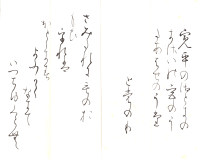 寛平の御とき
きさいの宮の
うたあはせのうた
とものり
さみたれにものお
もひ
をれは
ほとゝきす
よふかく
なきて
いつちゆくらむ